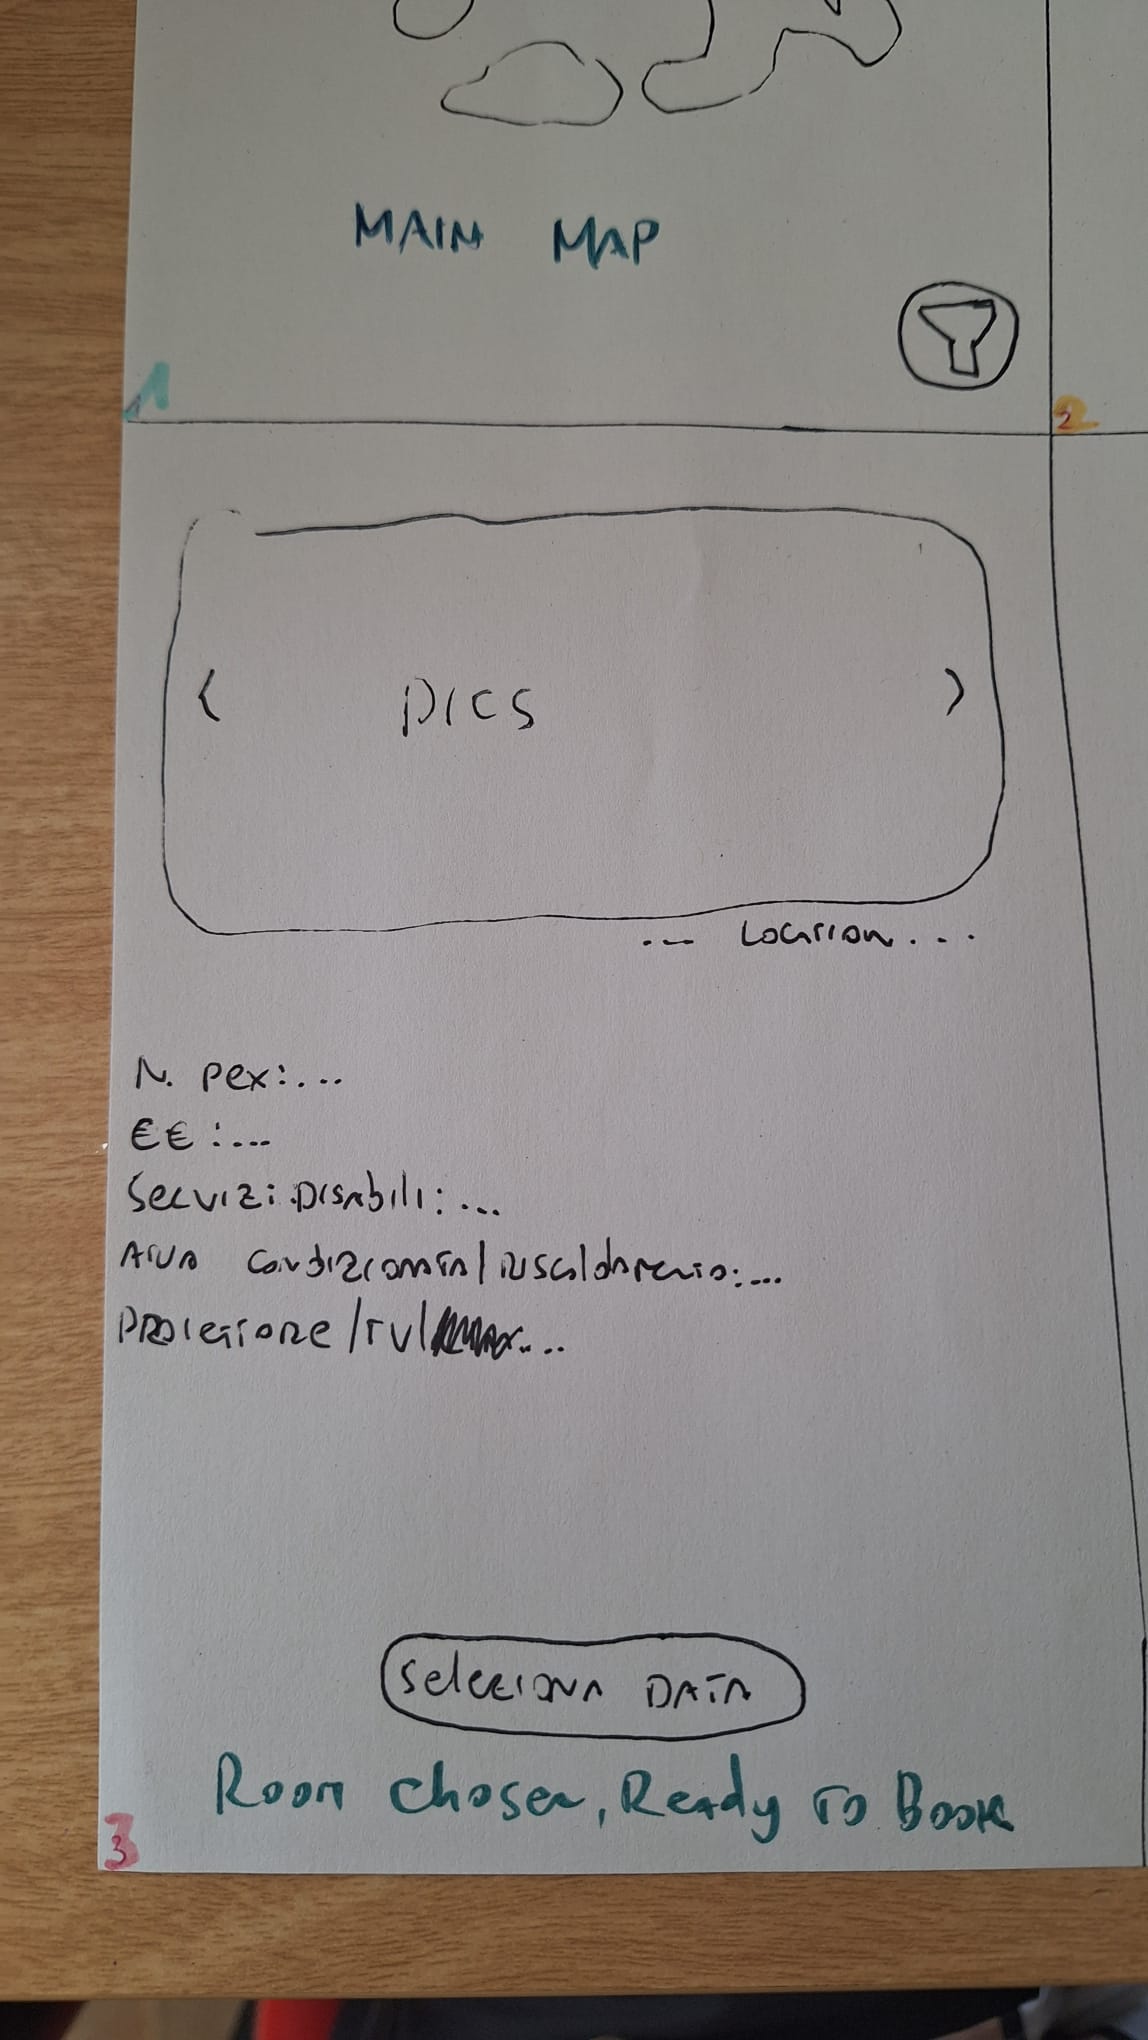 MAIN MAP
1
2
< PICS >
... Location...
N. pex:...
€€:...
Servizi Disabili:...
Aria condizionata/riscaldamento:...
Proiezione/TV/ ...
Seleziona DATA
Room chosen, Ready to Book
3